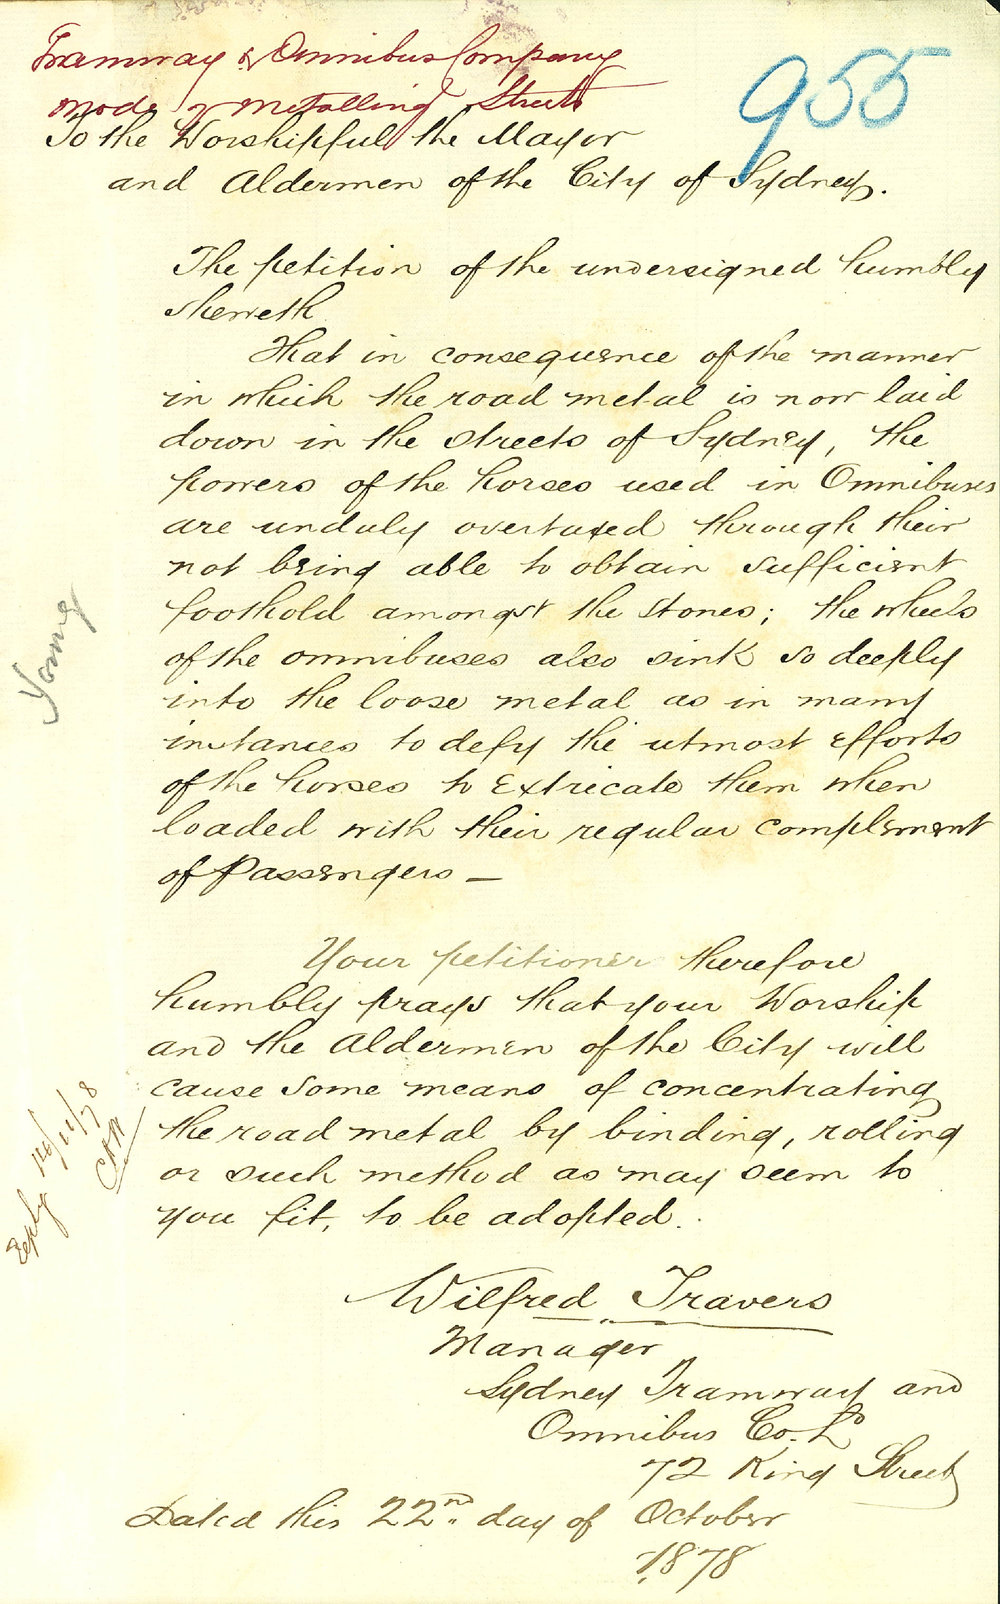 Tramway & Omnibus Company
mode of metalling Streets
955
To the Worshipful the Mayor
and Aldermen of the City of Sydney.
The petition of the undersigned humbly
sheweth
That in consequence of the manner
in which the road metal is now laid
down in the streets of Sydney, the
powers of the horses used in Omnibuses
are unduly overtaxed through their
not being able to obtain sufficient
foothold amongst the stones; the wheels
of the omnibuses also sink so deeply
into the loose metal as in many
instances to defy the utmost efforts
of the horses to extricate them when
loaded with their regular complement
of Passengers —
Young
Your petitioner therefore
humbly prays that your Worship
and the Aldermen of the City will
cause some means of concentrating
the road metal by binding, rolling
or such method as may seem to
you fit, to be adopted.
Reply
Wilfred Travers
Manager
Sydney Tramway and
Omnibus Co. Ld
72 King Street
Dated this 22nd. day of October
1878